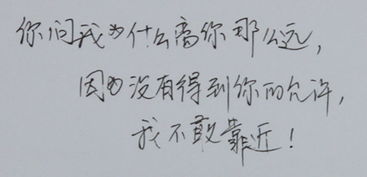 你问我为什么离你那么远，
因为没有得到你的允许，
我不敢靠近！